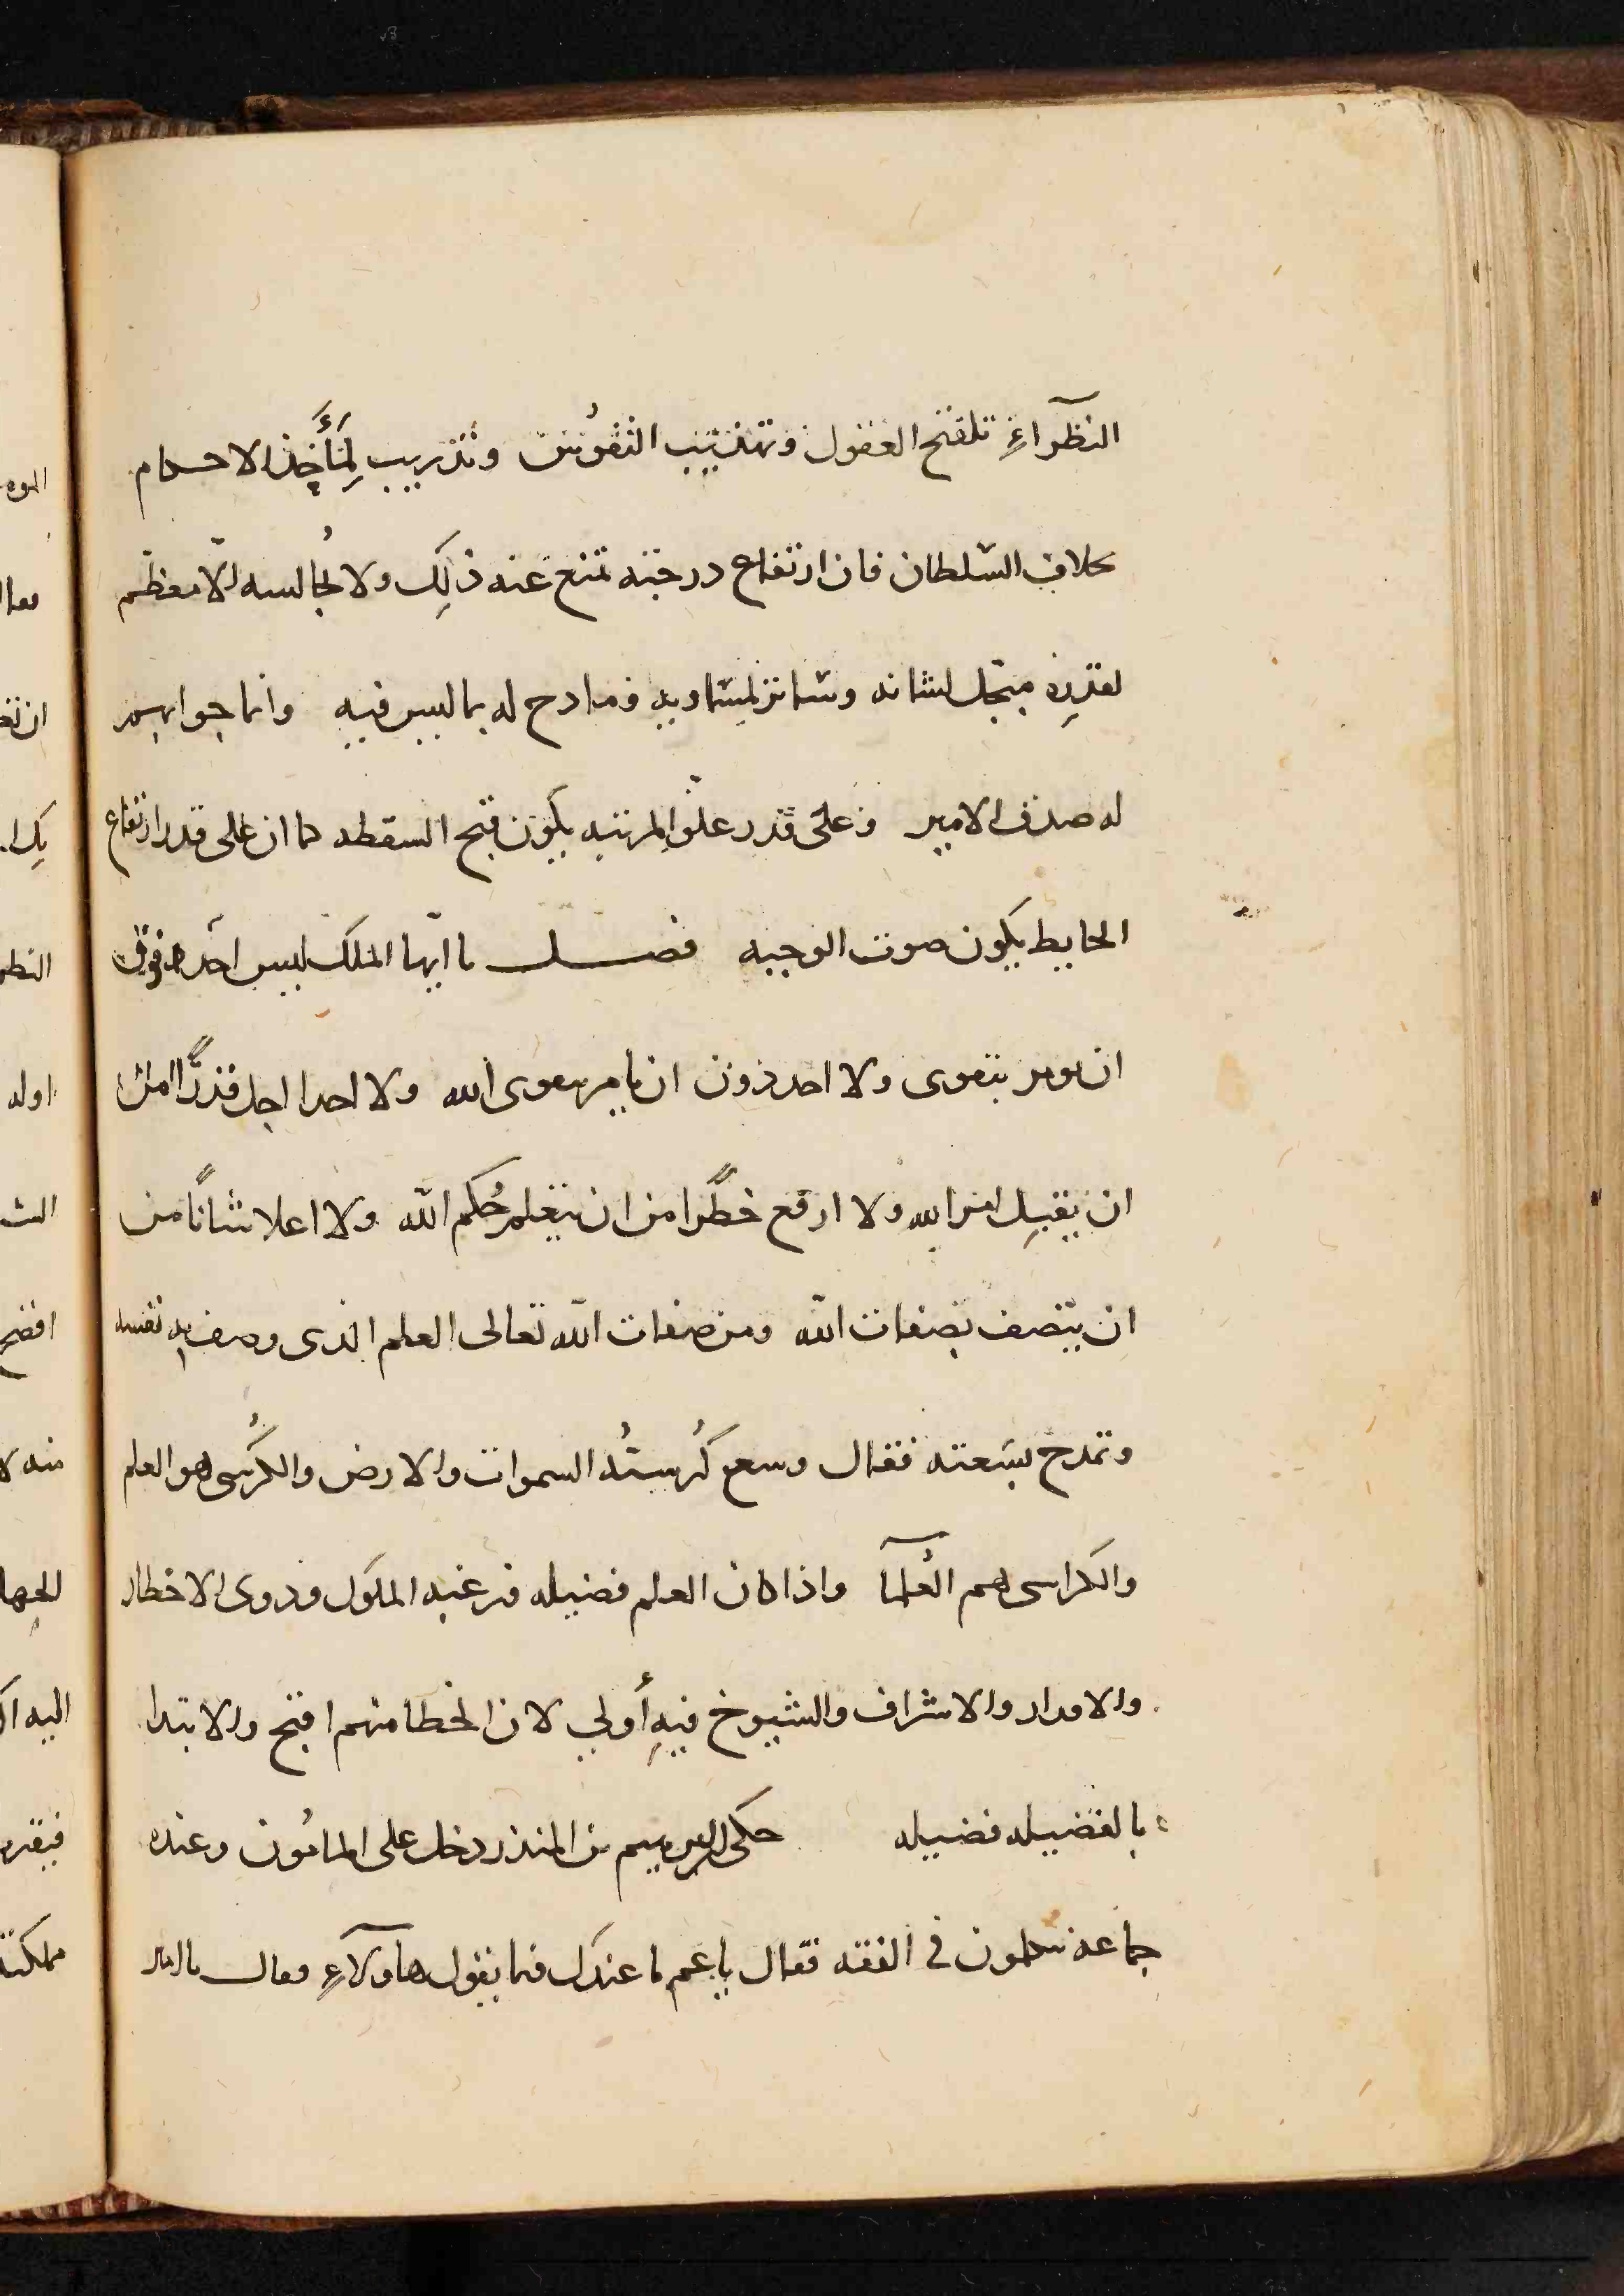 النظراء تلقيح العقول وتهذيب النفوس وتدريب لمأخذ الاحكام
بخلاف السلطان فان ارتفاع درجته تمنع عنه ذلك ولا يجالسه الا معظم
لقدره مبجل لشانه وساتر لمساويه ومادح له بما ليس فيه وانما جوابهم
له صدق الامير وعلى قدر علو المرتبه يكون قبح السقطه كما ان على قدر ارتفاع
الحايط يكون صوت الوجبه فصل يا ايها الملك ليس احد فوق
ان يومر بتقوى ولا احد دون ان يامر بتقوى الله ولا احدا اجل قدرا من
ان يقبل امر الله ولا ارفع خطرا من ان يتعلم حكم الله ولا اعلا شانا من
ان يتصف بصفات الله ومن صفات الله تعالى العلم الذى وصف به نفسه
وتمدح بسعته فقال وسع كرسيه السموات والارض والكرسى هو العلم
والكراسى هم العلمآ واذا كان العلم فضيله فرغبه الملوك وذوى الاخطار
والاقدار والاشراف والشيوخ فيه أولى لان الخطا منهم اقبح والابتدا
بالفضيله فضيله حكى ان ابرهيم بن المنذر دخل على المامون وعنده
جماعه يتكلمون فى الفقه فقال يا عم ما عندك فيما يقول هاؤلآء فقال يا امير